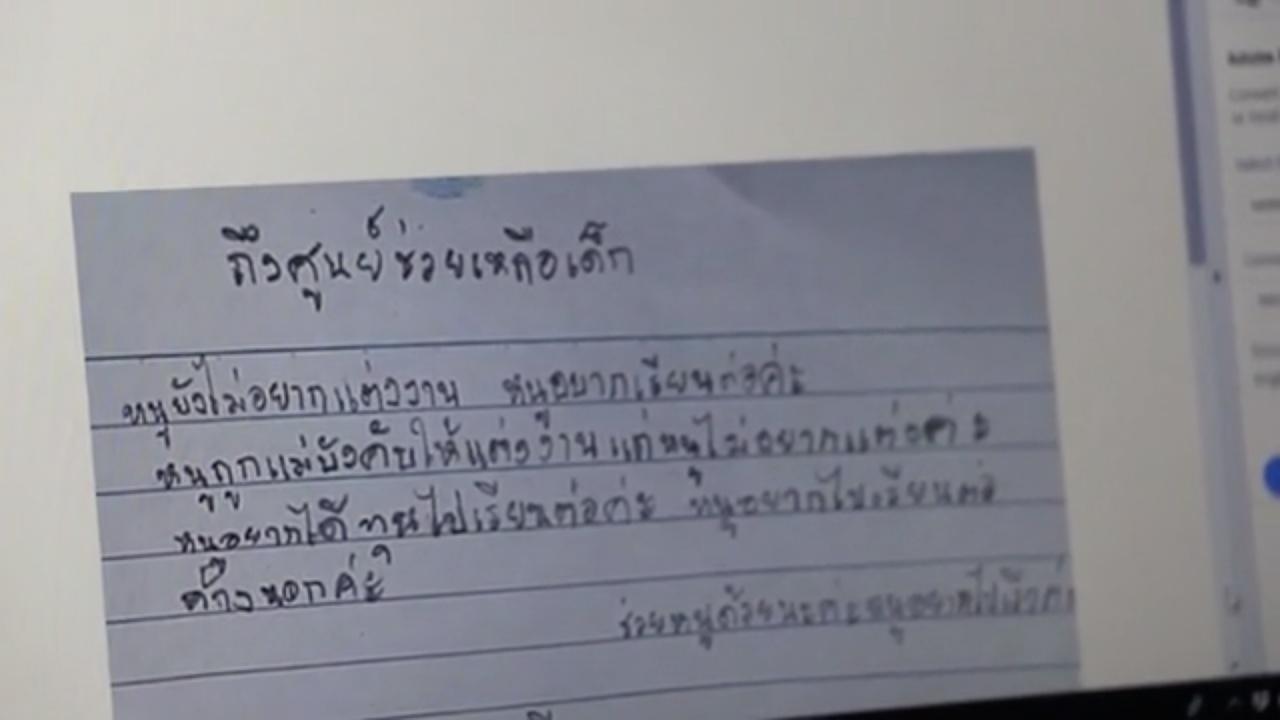 ถึงศูนย์ช่วยเหลือเด็ก
หนูยังไม่อยากแต่งงาน หนูอยากเรียนต่อค่ะ
หนูถูกแม่บังคับให้แต่งงานแต่หนูไม่อยากแต่งค่ะ
หนูอยากได้ทุนไปเรียนต่อค่ะ หนูอยากไปเรียนต่อ
ข้างนอกค่ะ
ช่วยหนูด้วยนะคะหนูอยากไป